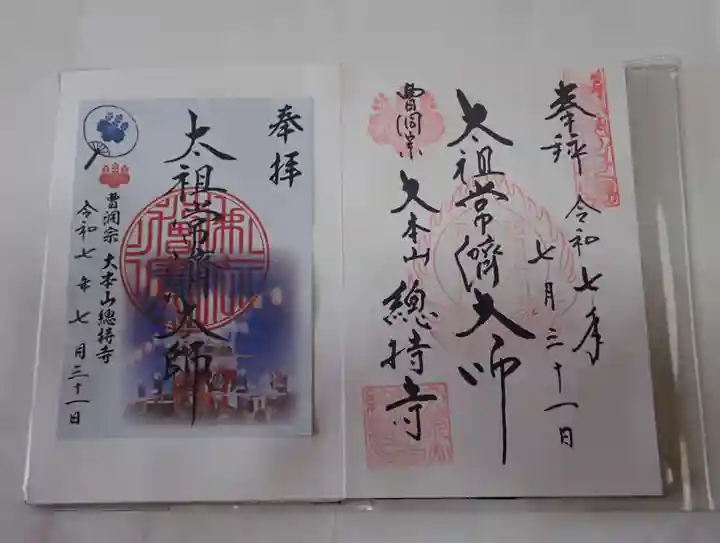 奉拝
太祖常濟大師
曹洞宗 大本山總持寺
令和七年七月三十一日
奉拝
令和七年
七月三十一日
太祖常濟大師
曹洞宗
大本山
總持寺